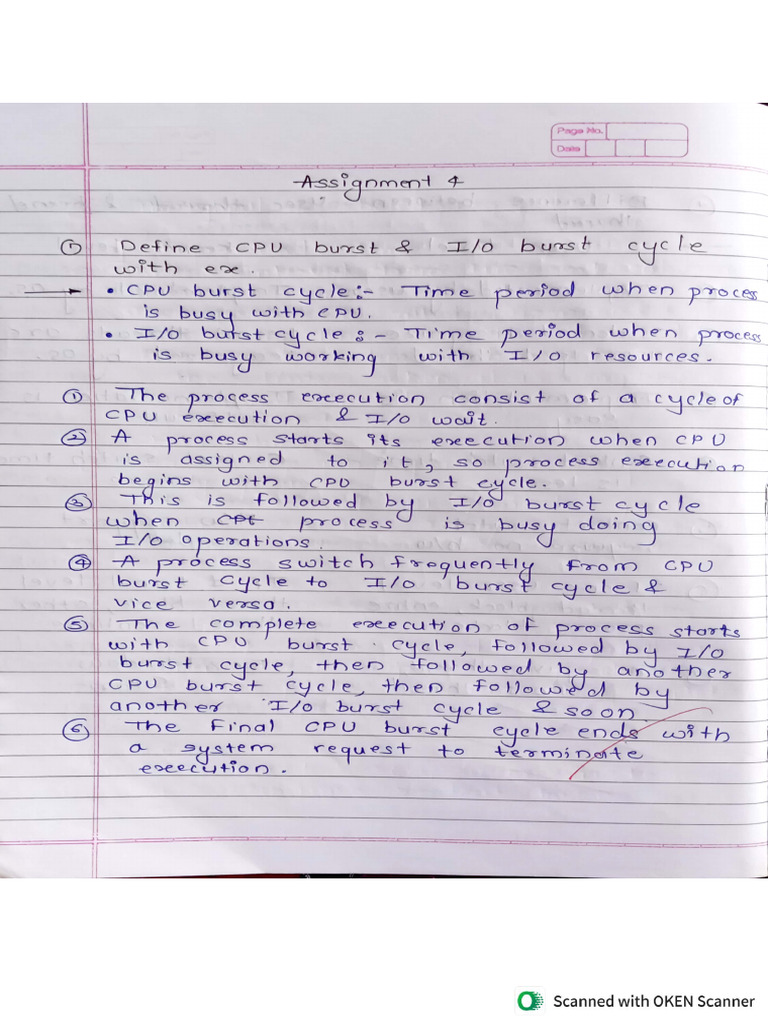 Page No.
Date
Assignment 4
① Define CPU burst & I/O burst cycle
with ex.
→ • CPU burst cycle :- Time period when process
is busy with CPU.
• I/O burst cycle :- Time period when process
is busy working with I/O resources.
① The process execution consist of a cycle of
CPU execution & I/O wait.
② A process starts its execution when CPU
is assigned to it, so process execution
begins with CPU burst cycle.
③ This is followed by I/O burst cycle
when process is busy doing
I/O operations.
④ A process switch frequently from CPU
burst cycle to I/O burst cycle &
vice versa.
⑤ The complete execution of process starts
with CPU burst cycle, followed by I/O
burst cycle, then followed by another
CPU burst cycle, then followed by
another I/O burst cycle & so on.
⑥ The final CPU burst cycle ends with
a system request to terminate
execution.
Scanned with OKEN Scanner